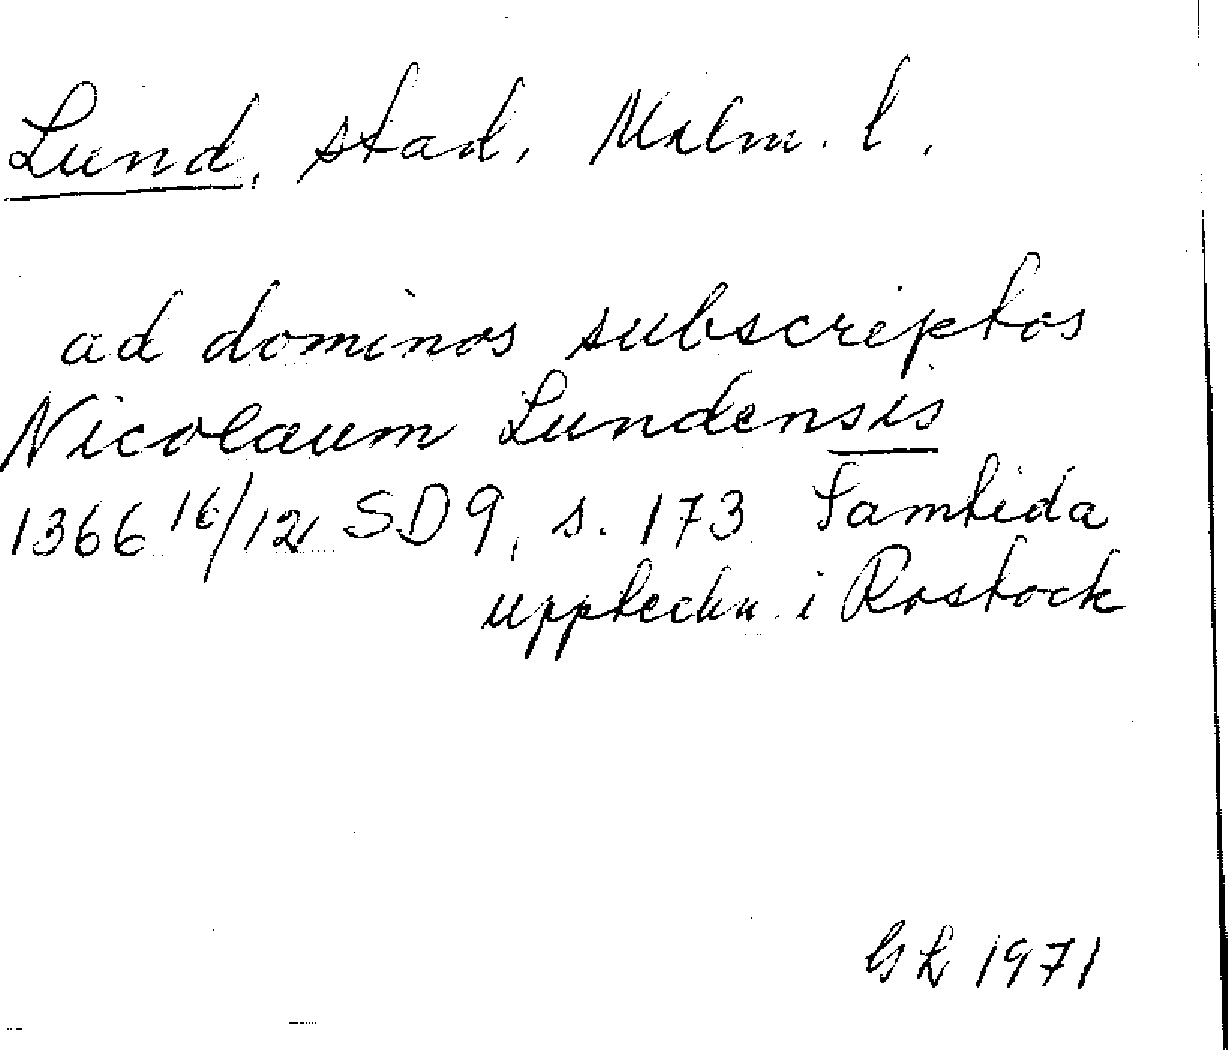 Lund, stad, Malm. l.
ad dominos subscriptos
Nicolaum Lundensis
1366 16/12 SD 9, s. 173 Samtida
uppteckn. i Rostock
GL 1971